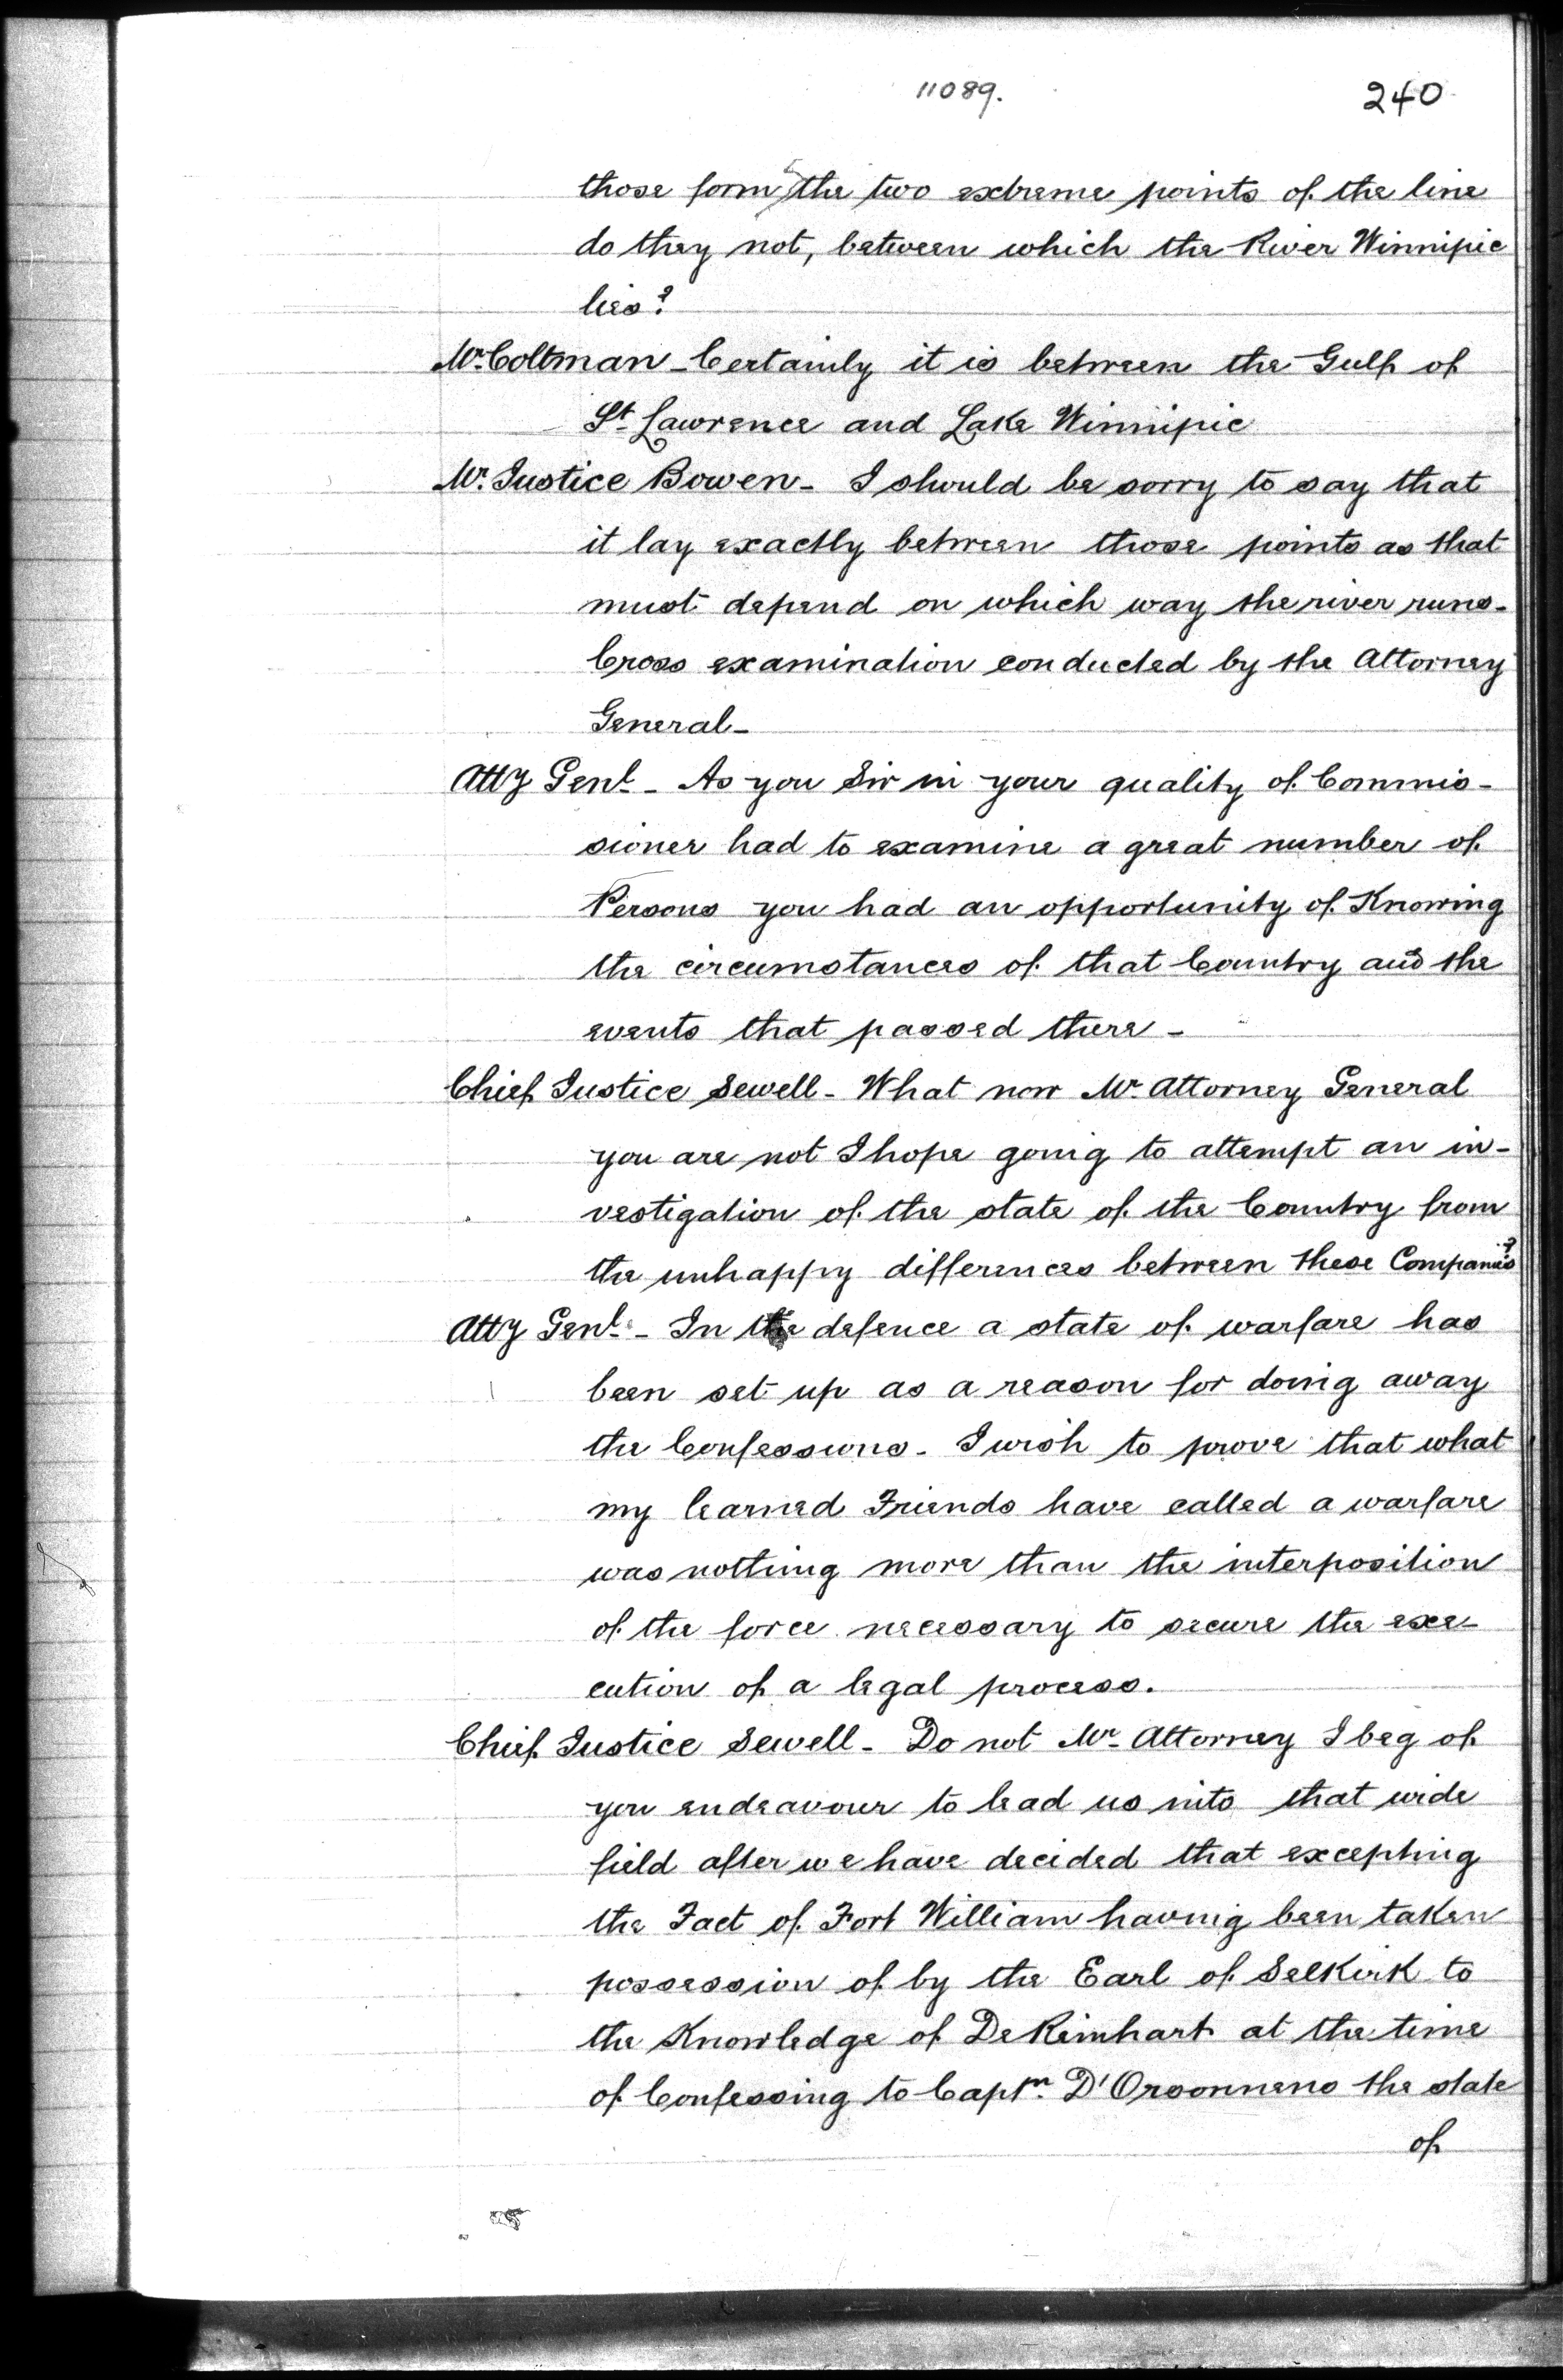 11089.
240
those form the two extreme points of the line
do they not, between which the River Winnipic
lies?
Mr. Coltman - Certainly it is between the Gulf of
St. Lawrence and Lake Winnipic
Mr. Justice Bowen - I should be sorry to say that
it lay exactly between those points as that
must depend on which way the river runs -
Cross examination conducted by the Attorney
General -
Atty Genl - As you Sir in your quality of Commis-
sioner had to examine a great number of
Persons you had an opportunity of Knowing
the circumstances of that Country and the
events that passed there -
Chief Justice Sewell - What now Mr. Attorney General
you are not I hope going to attempt an in-
vestigation of the state of the Country from
the unhappy differences between these Companies?
Atty Genl - In the defence a state of warfare has
been set up as a reason for doing away
the Confessions - I wish to prove that what
my learned Friends have called a warfare
was nothing more than the interposition
of the force necessary to secure the exe-
cution of a legal process.
Chief Justice Sewell - Do not Mr. Attorney I beg of
you endeavour to lead us into that wide
field after we have decided that excepting
the Fact of Fort William having been taken
possession of by the Earl of Selkirk to
the Knowledge of De Reinhart at the time
of Confessing to Captn. D'Orsonnens the state
of